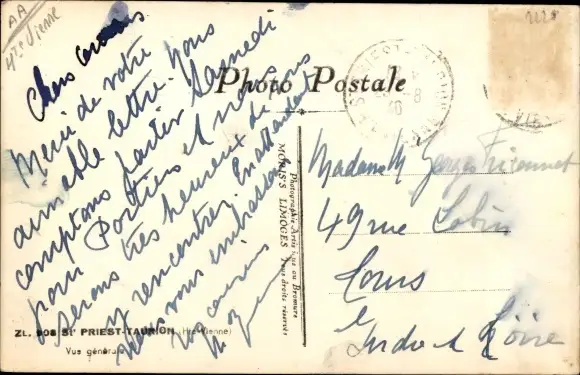 AA
Hte Vienne
Chers cousins
Merci de votre
aimable lettre. Nous
comptons partir Samedi
pour Poitiers et nous
serons très heureux de vous
y rencontrer. En attendant
Nous vous embrassons
vos cousins
Photo Postale
Madame M Georges
49 rue
Tours
Indre et Loire
Photographie Artistique ou Bromure
MORIS'S LIMOGES Tous droits réservés
ZL. 908 St PRIEST-TAURION (Hte-Vienne)
Vue générale